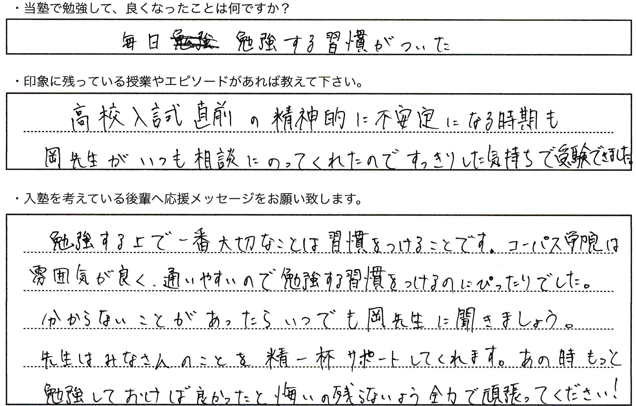 ・当塾で勉強して、良くなったことは何ですか？
毎日 勉強 勉強する習慣がついた
・印象に残っている授業やエピソードがあれば教えて下さい。
高校入試直前の精神的に不安定になる時期も
岡先生がいつも相談にのってくれたのですっきりした気持ちで受験できました。
・入塾を考えている後輩へ応援メッセージをお願い致します。
勉強する上で一番大切なことは習慣をつけることです。コーパス学院は
雰囲気が良く、通いやすいので勉強する習慣をつけるのにぴったりでした。
分からないことがあったらいつでも岡先生に聞きましょう。
先生はみなさんのことを精一杯サポートしてくれます。あの時もっと
勉強しておけば良かったと悔いの残らないよう全力で頑張ってください！